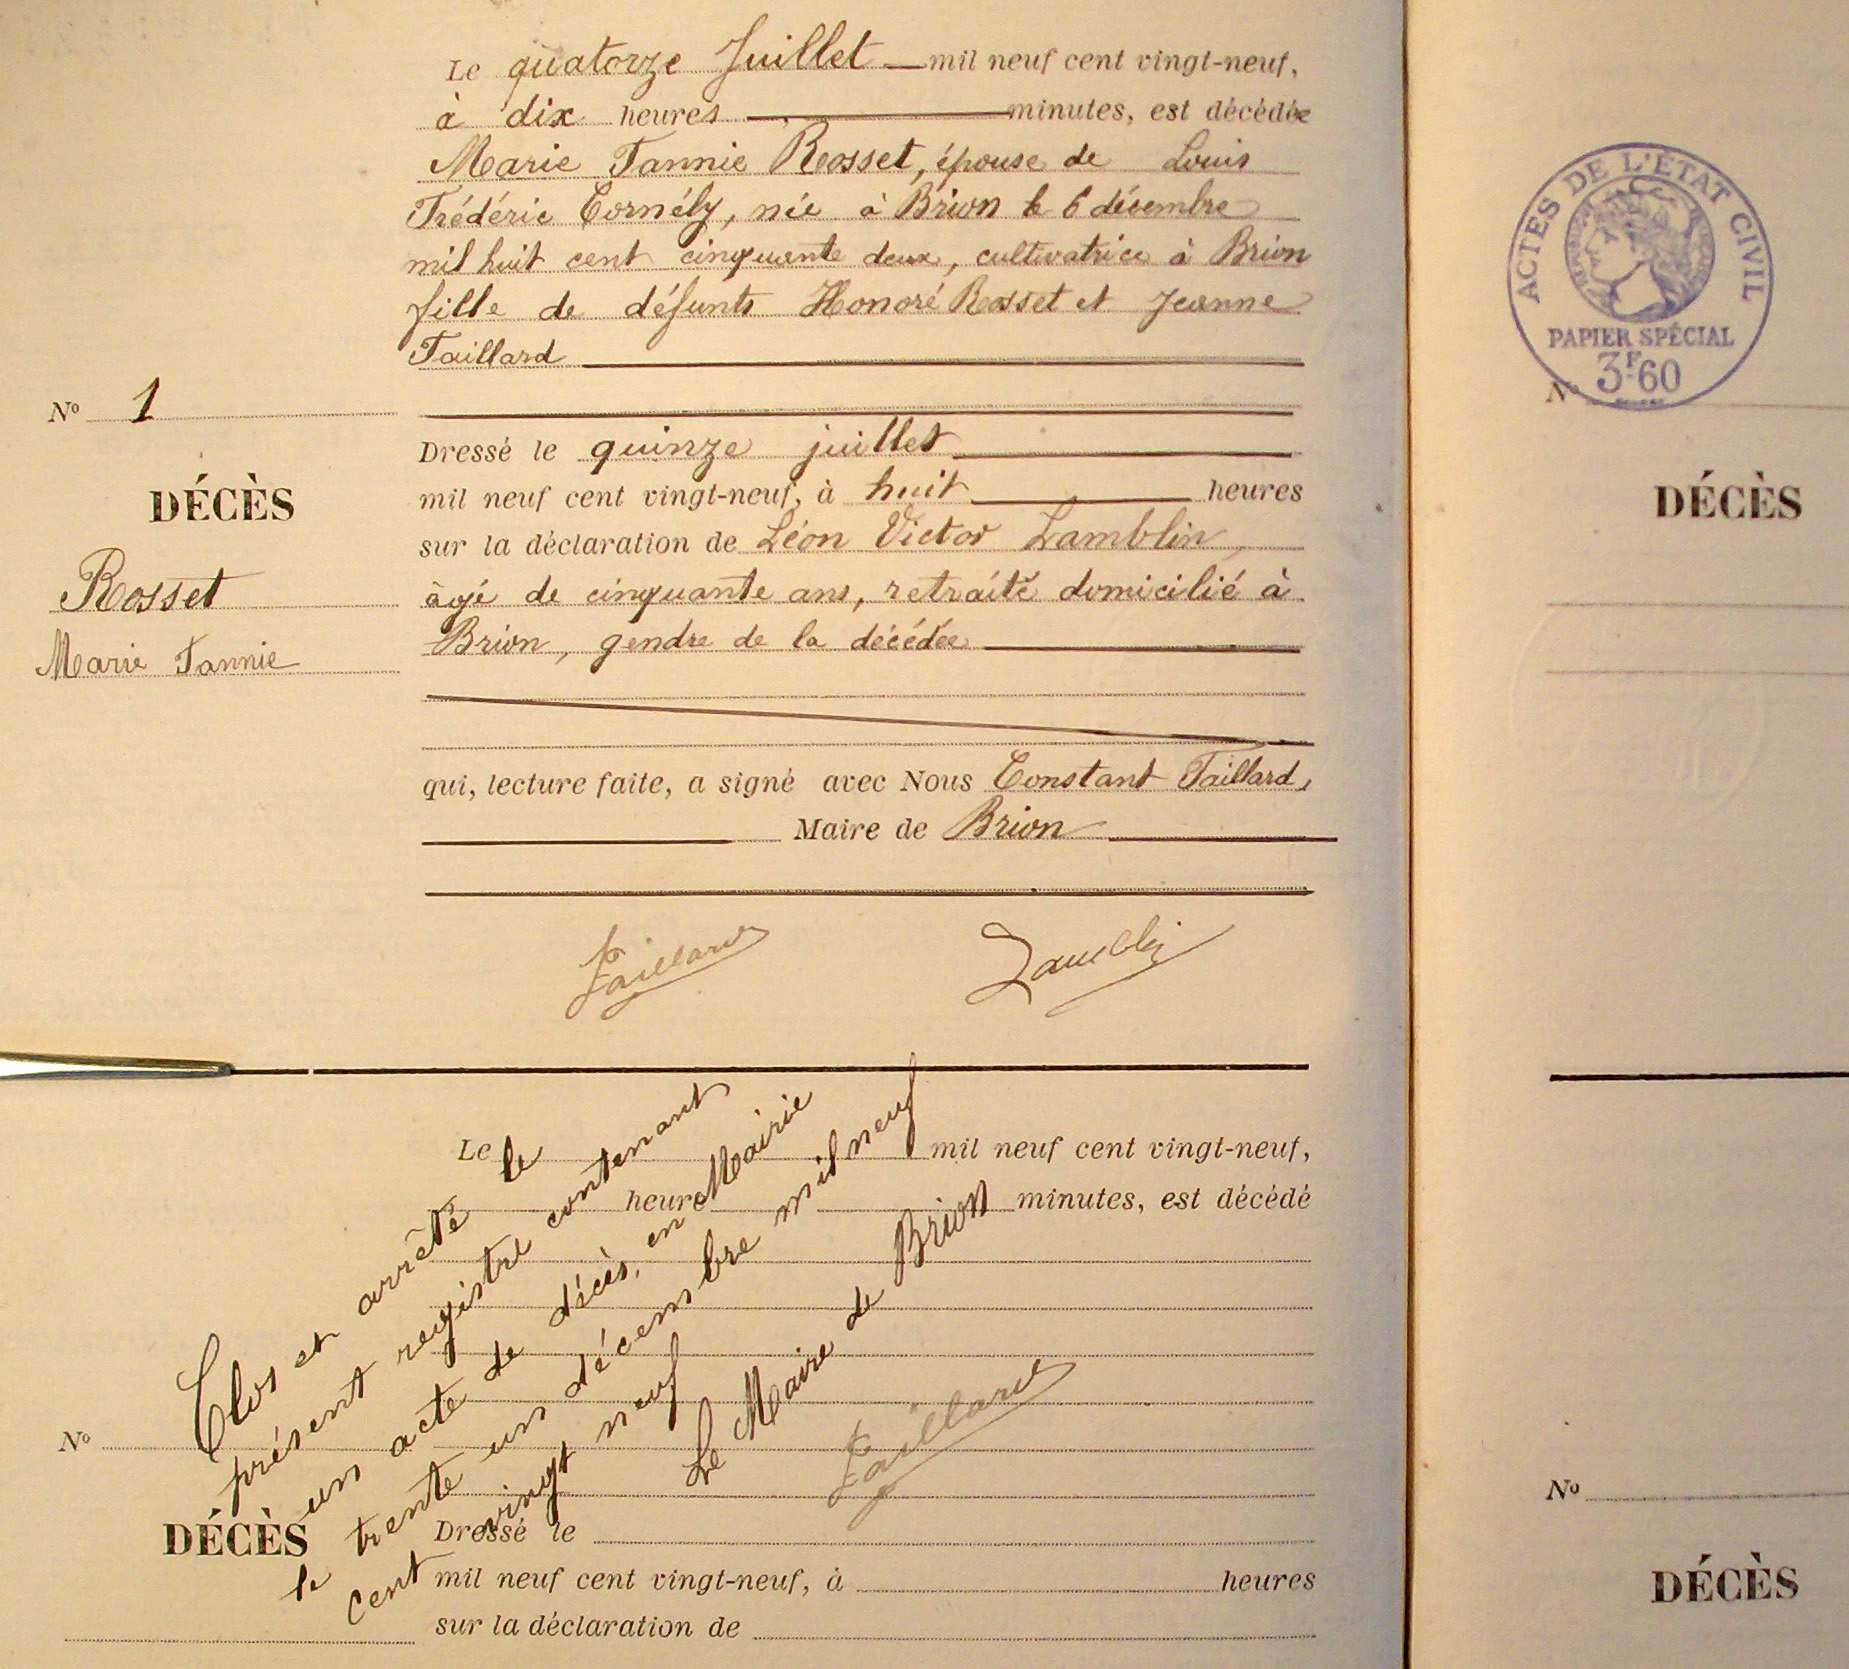 Le quatorze Juillet mil neuf cent vingt-neuf,
à dix heures minutes, est décédée
Marie Fannie Rosset, épouse de Louis
Frédéric Cornély, née à Brion le 6 décembre
mil huit cent cinquante deux, cultivatrice à Brion
fille de défunts Honoré Rosset et Jeanne
Taillard
No 1
DÉCÈS
Rosset
Marie Fannie
Dressé le quinze juillet
mil neuf cent vingt-neuf, à huit heures
sur la déclaration de Léon Victor Lamblin,
âgé de cinquante ans, retraité domicilié à
Brion, gendre de la décédée
qui, lecture faite, a signé avec Nous Constant Taillard,
Maire de Brion
Taillard
Lamblin
Le mil neuf cent vingt-neuf,
heure minutes, est décédé
Clos et arrêté le
présent registre contenant
un acte de décès, en Mairie
le trente un décembre mil neuf
cent vingt neuf
Le Maire de Brion
Taillard
No
DÉCÈS
Dressé le
mil neuf cent vingt-neuf, à heures
sur la déclaration de
ACTES DE L'ÉTAT CIVIL
PAPIER SPÉCIAL
3F.60
No
DÉCÈS
No
DÉCÈS